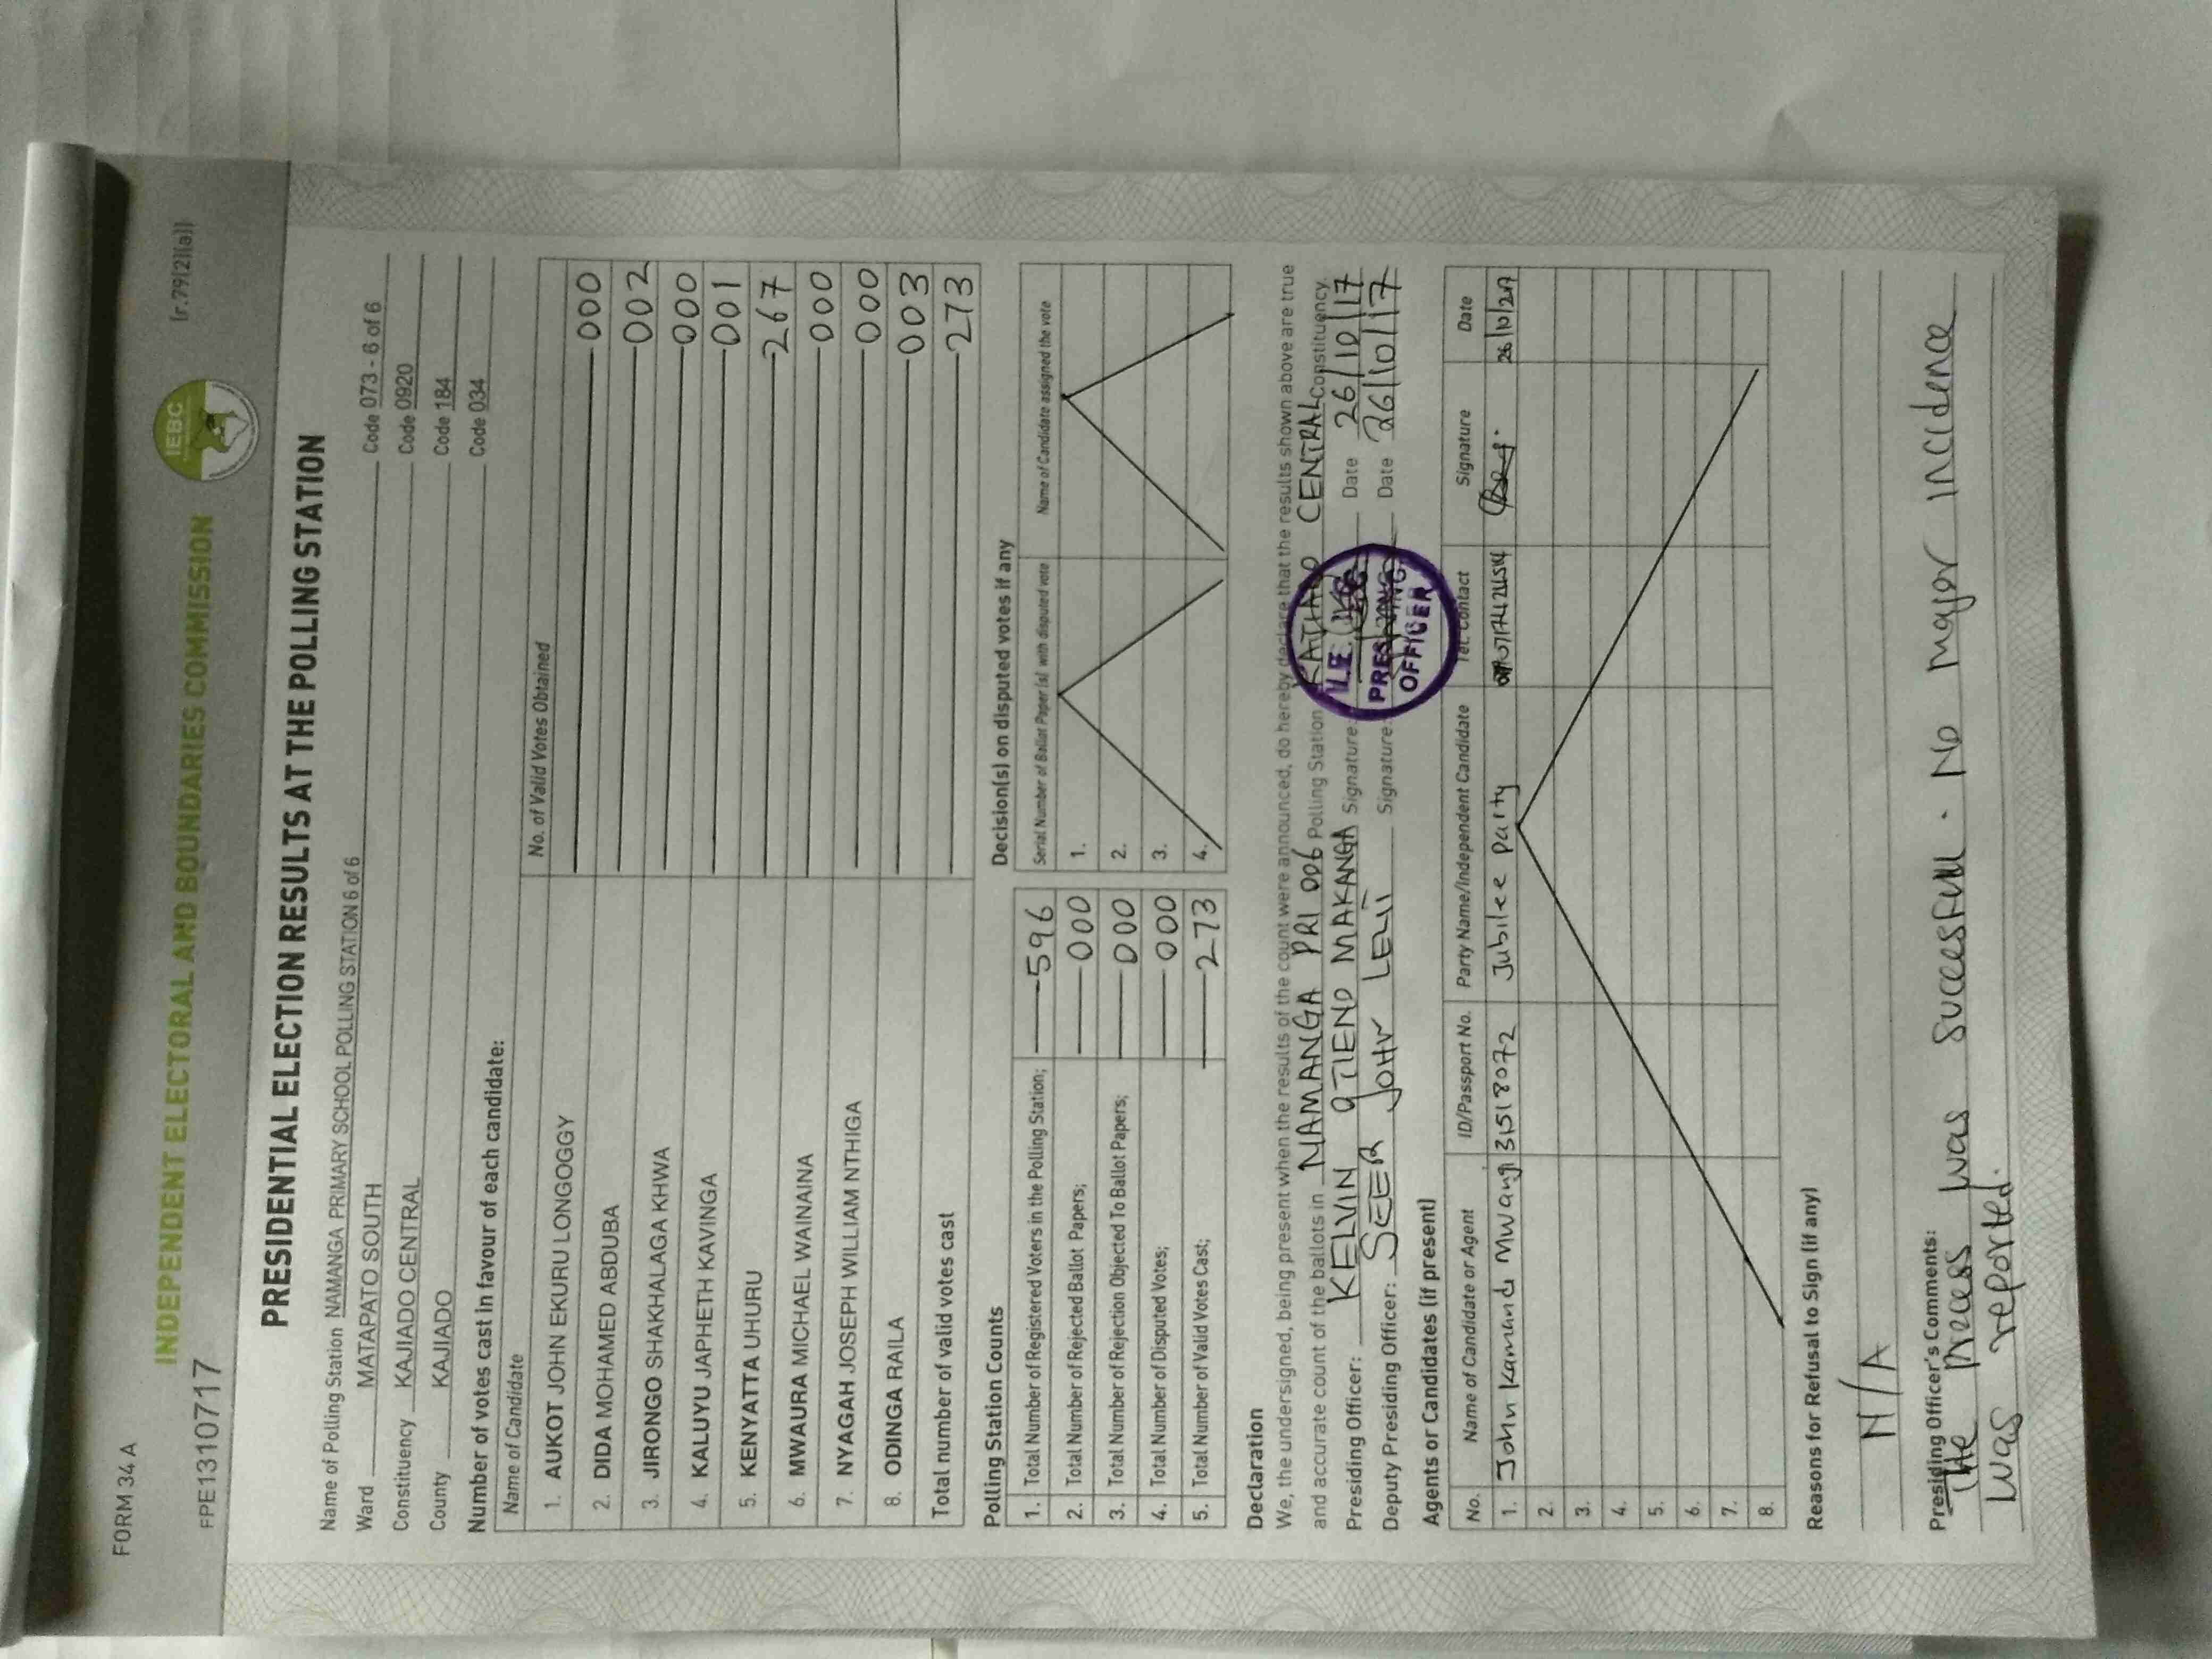 FORM 34 A
FPE1310717
INDEPENDENT ELECTORAL AND BOUNDARIES COMMISSION
IEBC
(r.79(2)(a))
PRESIDENTIAL ELECTION RESULTS AT THE POLLING STATION
Name of Polling Station NAMANGA PRIMARY SCHOOL POLLING STATION 6 of 6 Code 073 - 6 of 6
Ward MATAPATO SOUTH Code 0920
Constituency KAJIADO CENTRAL Code 184
County KAJIADO Code 034
Number of votes cast in favour of each candidate:
Name of Candidate No. of Valid Votes Obtained
1. AUKOT JOHN EKURU LONGOGGY 000
2. DIDA MOHAMED ABDUBA 002
3. JIRONGO SHAKHALAGA KHWA 000
4. KALUYU JAPHETH KAVINGA 001
5. KENYATTA UHURU 267
6. MWAURA MICHAEL WAINAINA 000
7. NYAGAH JOSEPH WILLIAM NTHIGA 000
8. ODINGA RAILA 003
Total number of valid votes cast 273
Polling Station Counts
1. Total Number of Registered Voters in the Polling Station; 596
2. Total Number of Rejected Ballot Papers; 000
3. Total Number of Rejection Objected To Ballot Papers; 000
4. Total Number of Disputed Votes; 000
5. Total Number of Valid Votes Cast; 273
Decision(s) on disputed votes if any
Serial Number of Ballot Paper (s) with disputed vote Name of Candidate assigned the vote
1.
2.
3.
4.
Declaration
We, the undersigned, being present when the results of the count were announced, do hereby declare that the results shown above are true
and accurate count of the ballots in NAMANGA PRI 006 Polling Station KAJIADO CENTRAL Constituency.
Presiding Officer: KELVIN OTIENO MAKANGA Signature: Date 26/10/17
Deputy Presiding Officer: SEER JOHN LEMI Signature: Date 26/10/17
PRESIDING
OFFICER
Agents or Candidates (if present)
No. Name of Candidate or Agent ID/Passport No. Party Name/Independent Candidate Tel. Contact Signature Date
1. John Kamandu Mwangi 31518072 Jubilee Party
2.
3.
4.
5.
6.
7.
8.
Reasons for Refusal to Sign (if any)
N/A
Presiding Officer's Comments:
The Process was succesfull. No mayor incidence
was reported.